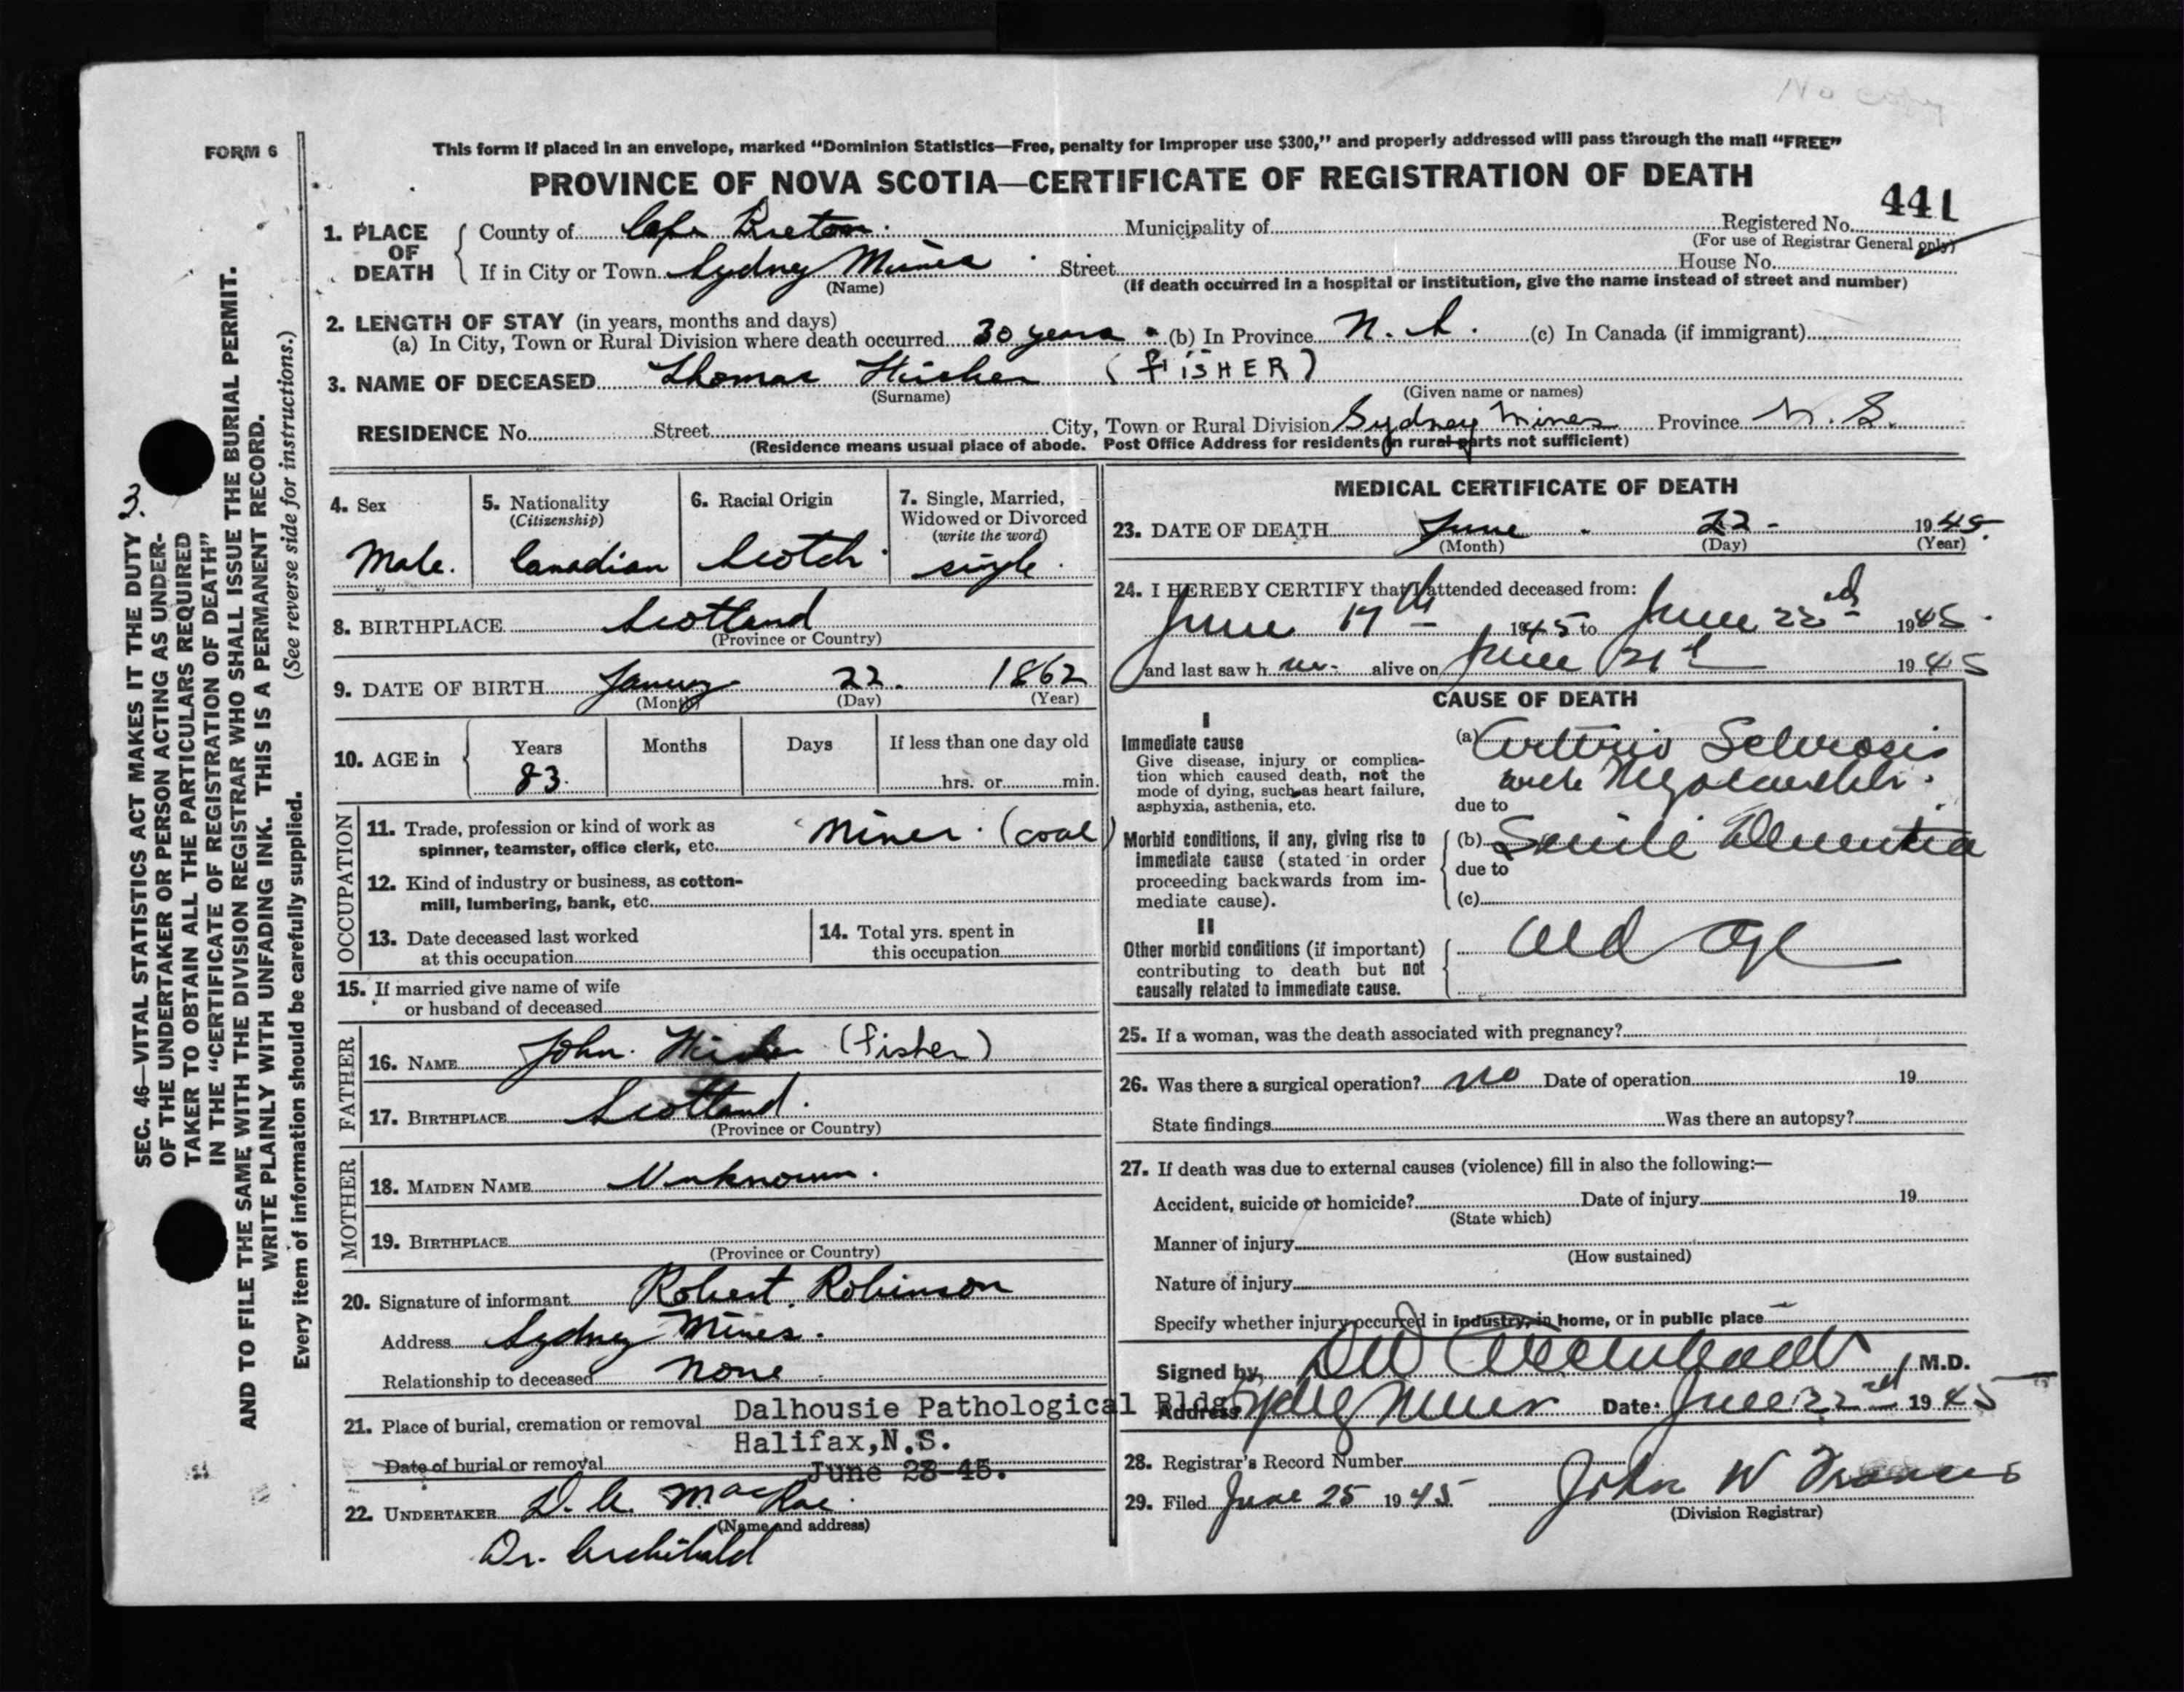 No copy
FORM 6
This form if placed in an envelope, marked "Dominion Statistics—Free, penalty for improper use $300," and properly addressed will pass through the mail "FREE"
PROVINCE OF NOVA SCOTIA—CERTIFICATE OF REGISTRATION OF DEATH
441
1. PLACE OF DEATH
County of Cape Breton. Municipality of Registered No.
(For use of Registrar General only)
If in City or Town Sydney Mines Street House No.
(Name) (If death occurred in a hospital or institution, give the name instead of street and number)
2. LENGTH OF STAY (in years, months and days)
(a) In City, Town or Rural Division where death occurred 30 years (b) In Province N.S. (c) In Canada (if immigrant)
3. NAME OF DECEASED Thomas (FiSHER)
(Surname) (Given name or names)
RESIDENCE No. Street City, Town or Rural Division Sydney Mines Province N.S.
(Residence means usual place of abode. Post Office Address for residents in rural parts not sufficient)
3.
SEC. 46—VITAL STATISTICS ACT MAKES IT THE DUTY
OF THE UNDERTAKER OR PERSON ACTING AS UNDER-
TAKER TO OBTAIN ALL THE PARTICULARS REQUIRED
IN THE "CERTIFICATE OF REGISTRATION OF DEATH"
AND TO FILE THE SAME WITH THE DIVISION REGISTRAR WHO SHALL ISSUE THE BURIAL PERMIT.
WRITE PLAINLY WITH UNFADING INK. THIS IS A PERMANENT RECORD.
Every item of information should be carefully supplied. (See reverse side for instructions.)
4. Sex
Male.
5. Nationality
(Citizenship)
Canadian
6. Racial Origin
Scotch
7. Single, Married,
Widowed or Divorced
(write the word)
single.
8. BIRTHPLACE Scotland
(Province or Country)
9. DATE OF BIRTH January 22. 1862
(Month) (Day) (Year)
10. AGE in Years Months Days If less than one day old
83. hrs. or min.
OCCUPATION
11. Trade, profession or kind of work as
spinner, teamster, office clerk, etc. Miner. (coal)
12. Kind of industry or business, as cotton-
mill, lumbering, bank, etc.
13. Date deceased last worked
at this occupation
14. Total yrs. spent in
this occupation
15. If married give name of wife
or husband of deceased
FATHER
16. NAME John. (fisher)
17. BIRTHPLACE Scotland.
(Province or Country)
MOTHER
18. MAIDEN NAME Unknown.
19. BIRTHPLACE
(Province or Country)
20. Signature of informant Robert Robinson
Address Sydney Mines.
Relationship to deceased none
21. Place of burial, cremation or removal Dalhousie Pathological Bldg
Halifax,N.S.
Date of burial or removal June 28-45.
22. UNDERTAKER D. A. MacRae.
(Name and address)
Dr. Archibald
MEDICAL CERTIFICATE OF DEATH
23. DATE OF DEATH June 22 - 1945.
(Month) (Day) (Year)
24. I HEREBY CERTIFY that I attended deceased from:
June 17th 1945 to June 22nd 1945.
and last saw h alive on June 21st 1945
CAUSE OF DEATH
I
Immediate cause
Give disease, injury or complica-
tion which caused death, not the
mode of dying, such as heart failure,
asphyxia, asthenia, etc.
(a) Arterio Sclerosis
with
due to
Morbid conditions, if any, giving rise to
immediate cause (stated in order
proceeding backwards from im-
mediate cause).
(b) Senile Dementia
due to
(c)
II
Other morbid conditions (if important)
contributing to death but not
causally related to immediate cause.
Old age
25. If a woman, was the death associated with pregnancy?
26. Was there a surgical operation? no Date of operation 19
State findings Was there an autopsy?
27. If death was due to external causes (violence) fill in also the following:—
Accident, suicide or homicide? Date of injury 19
(State which)
Manner of injury
(How sustained)
Nature of injury
Specify whether injury occurred in industry, in home, or in public place
Signed by, M.D.
Address Sydney Mines Date: June 22nd 1945
28. Registrar's Record Number
29. Filed June 25 1945 John W Frances
(Division Registrar)